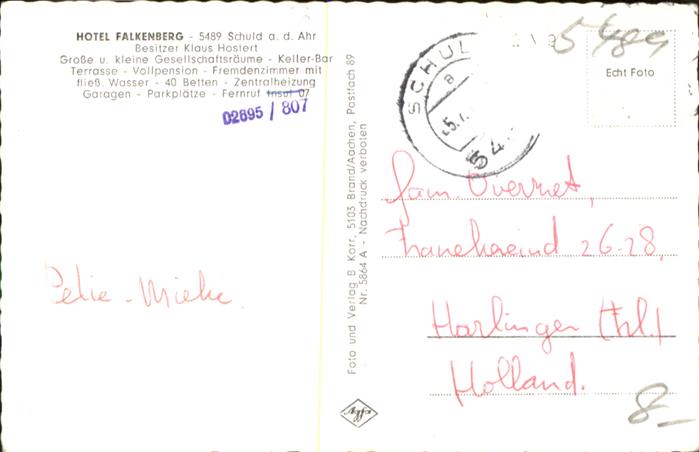 HOTEL FALKENBERG - 5489 Schuld a. d. Ahr
Besitzer Klaus Hostert
Große u. kleine Gesellschaftsräume - Keller-Bar
Terrasse - Vollpension - Fremdenzimmer mit
fließ. Wasser - 40 Betten - Zentralheizung
Garagen - Parkplätze - Fernruf Insul 07
02695 / 807
Mieke
Foto und Verlag B. Korr, 5103 Brand/Aachen, Postfach 89
Nr. 5864 A - Nachdruck verboten
Agfa
SCHUL
a
54
5489
Echt Foto
Fam. Overmet,
26-28,
Harlingen (Frl.)
Holland.
8-